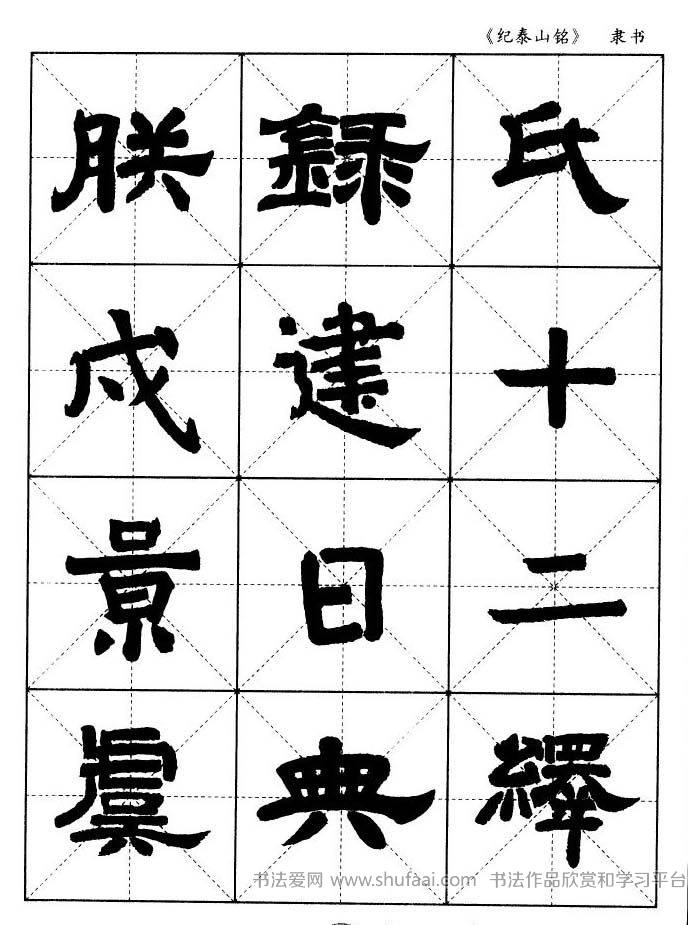 《纪泰山铭》 隶书
氏十二繹
録建日典
朕戌景虞
书法爱网 www.shufaai.com 书法作品欣赏和学习平台